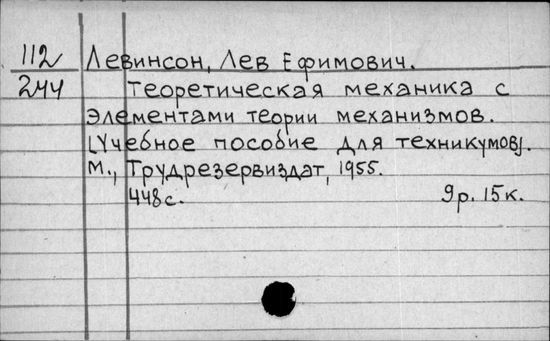 112 Левинсон, Лев Ефимович.
244 Теоретическая механика с
элементами теории механизмов.
[Учебное пособие для техникумов].
М., Трудрезервиздат, 1955.
448с. 9р. 15к.